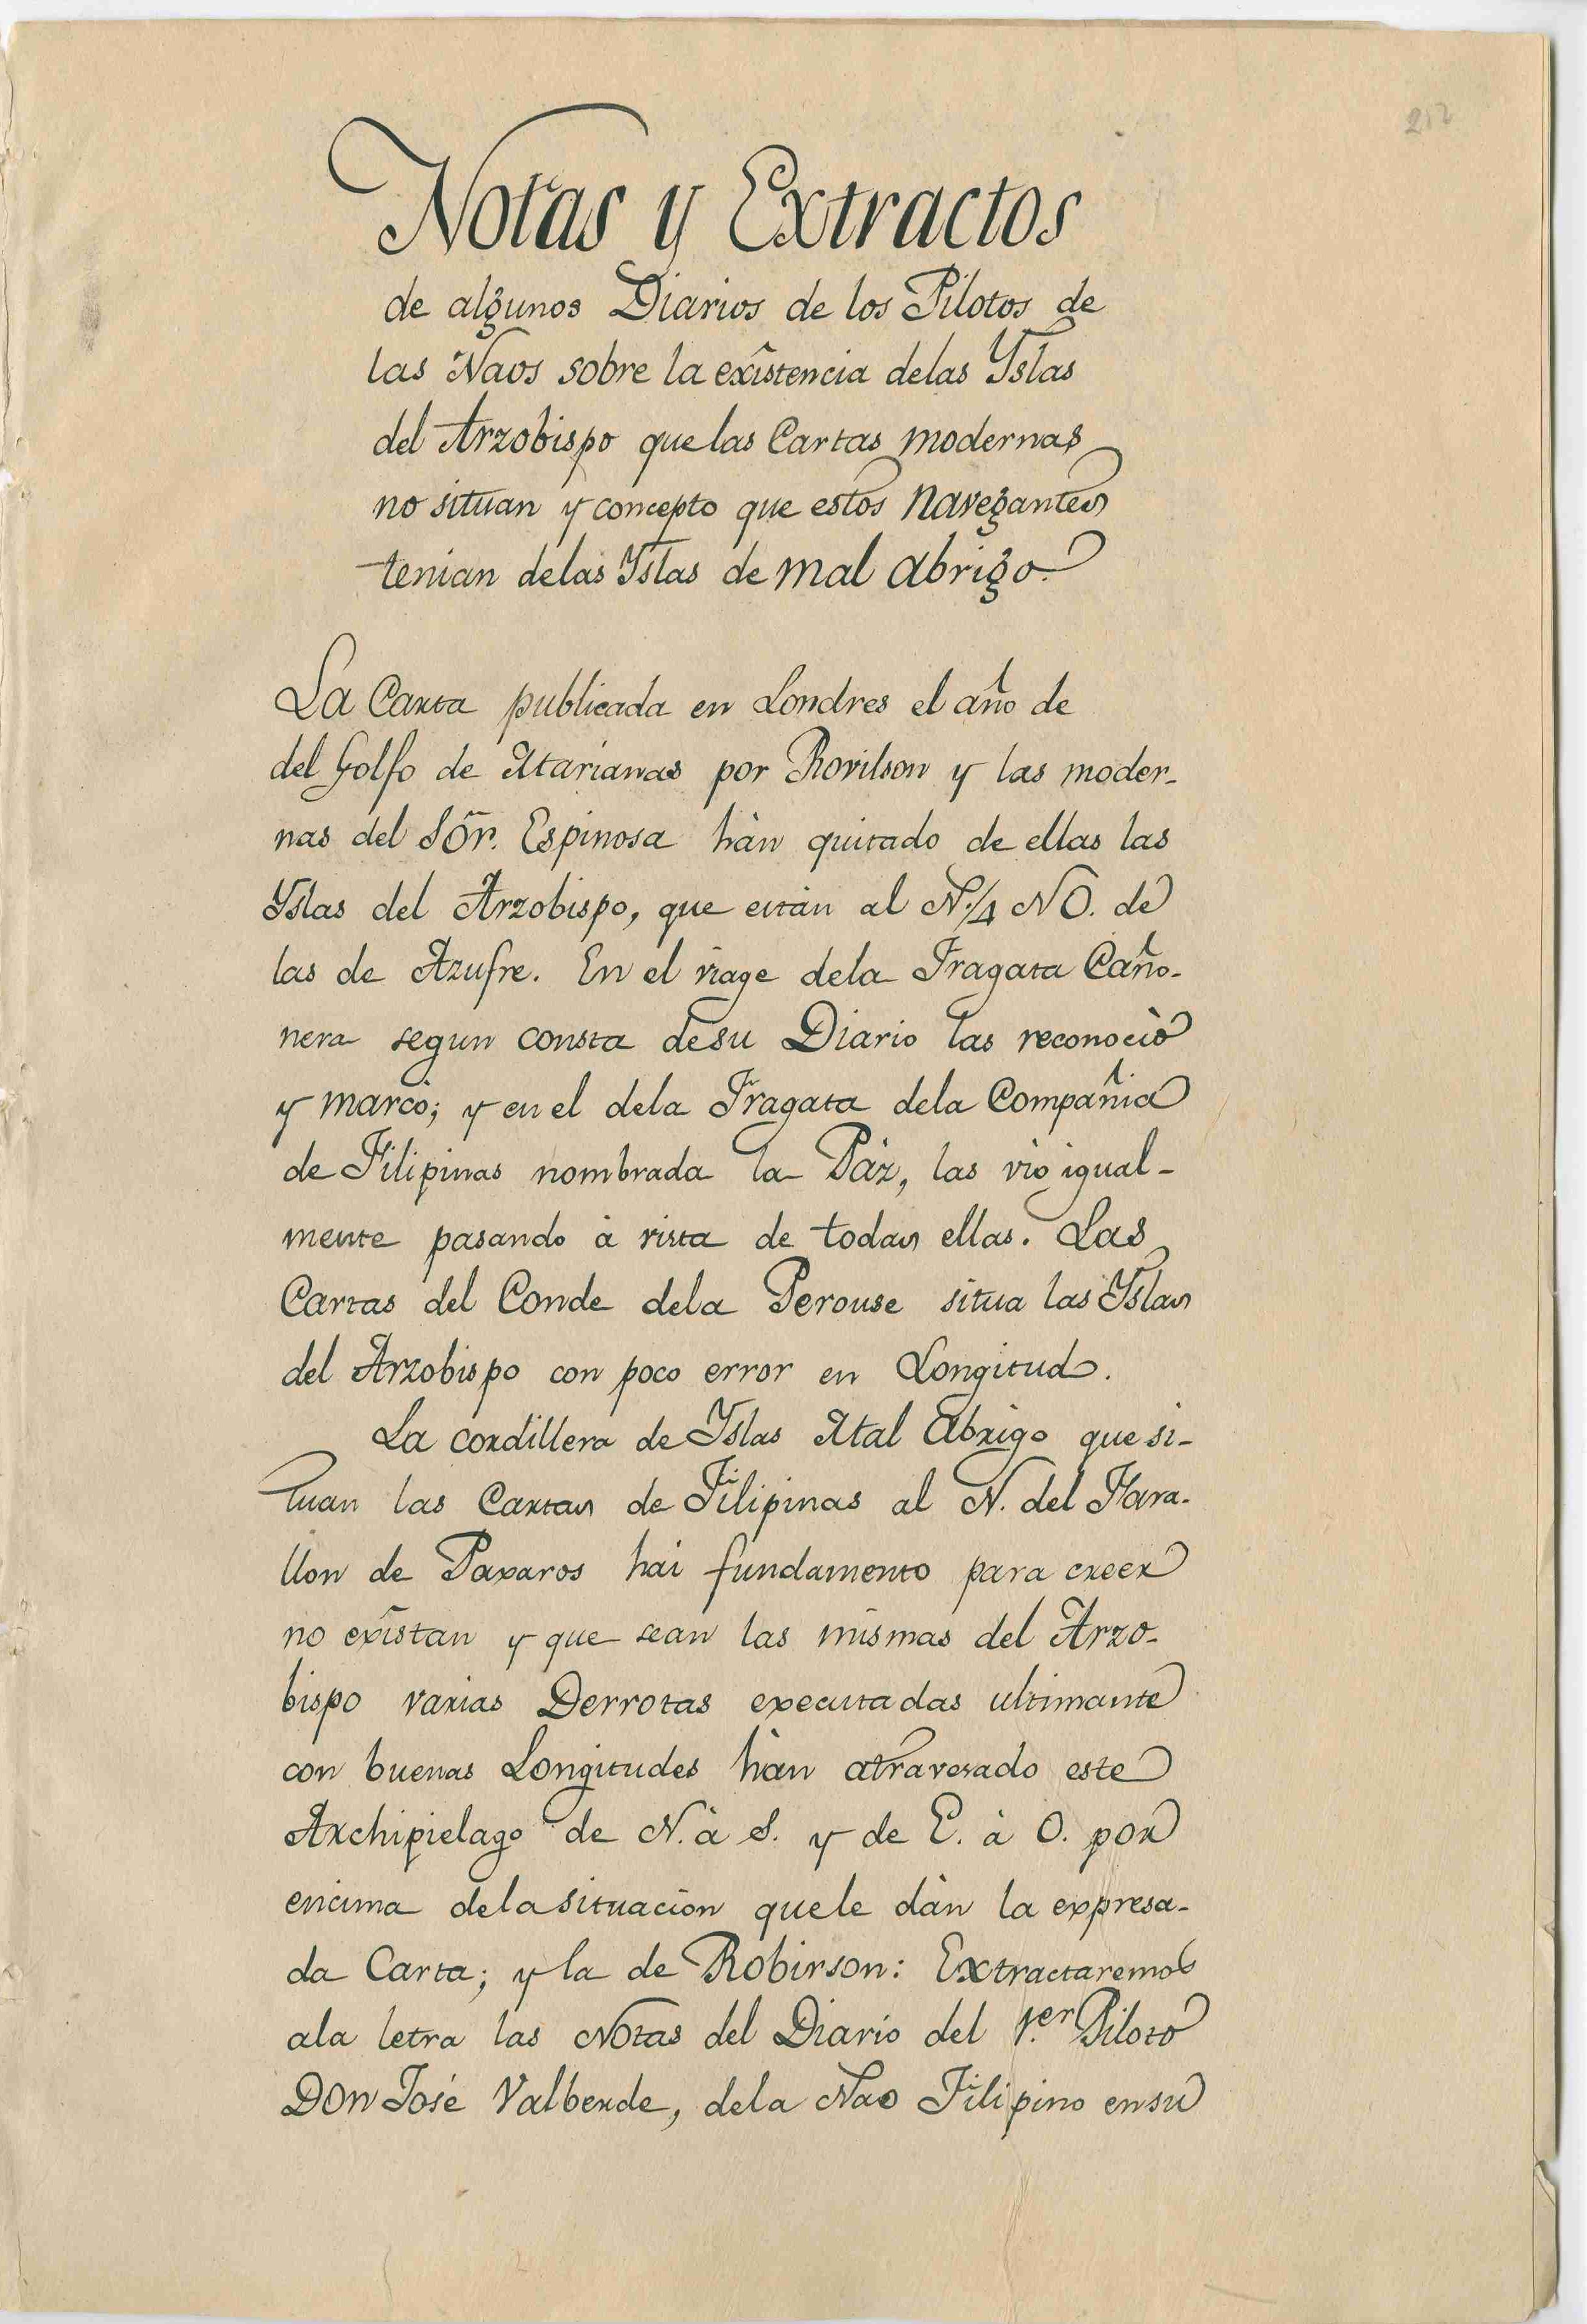 212
Notas y Extractos
de algunos Diarios de los Pilotos de
las Naos sobre la exîstencia delas Yslas
del Arzobispo que las Cartas modernas
no situan y concepto que estos Navegantes
tenian delas Yslas de mal abrigo.
La Carta publicada en Londres el año de
del Golfo de Marianas por Rovilson y las moder-
nas del Sõr. Espinosa hàn quitado de ellas las
Yslas del Arzobispo, que están al N.¼ NO. de
las de Azufre. En el viage dela Fragata Caño-
nera segun consta desu Diario las reconociò
y marcò; y en el dela Fragata dela Compañia
de Filipinas nombrada la Pàz, las viò igual-
mente pasando à vista de todas ellas. Las
Cartas del Conde dela Perouse situa las Yslas
del Arzobispo con poco error en Longitud.
La cordillera de Yslas Mal Abrigo que si-
tuan las Cartas de Filipinas al N. del Fara-
llon de Paxaros hai fundamento para creer
no exîstan y que sean las mismas del Arzo-
bispo varias Derrotas executadas ultimante
con buenas Longitudes hàn atravesado este
Archipielago de N. à S. y de E. à O. por
encima dela situación quele dàn la expresa-
da Carta; y la de Robirson: Extractaremos
ala letra las Notas del Diario del 1.er Piloto
Don José Valberde, dela Nao Filipino ensu